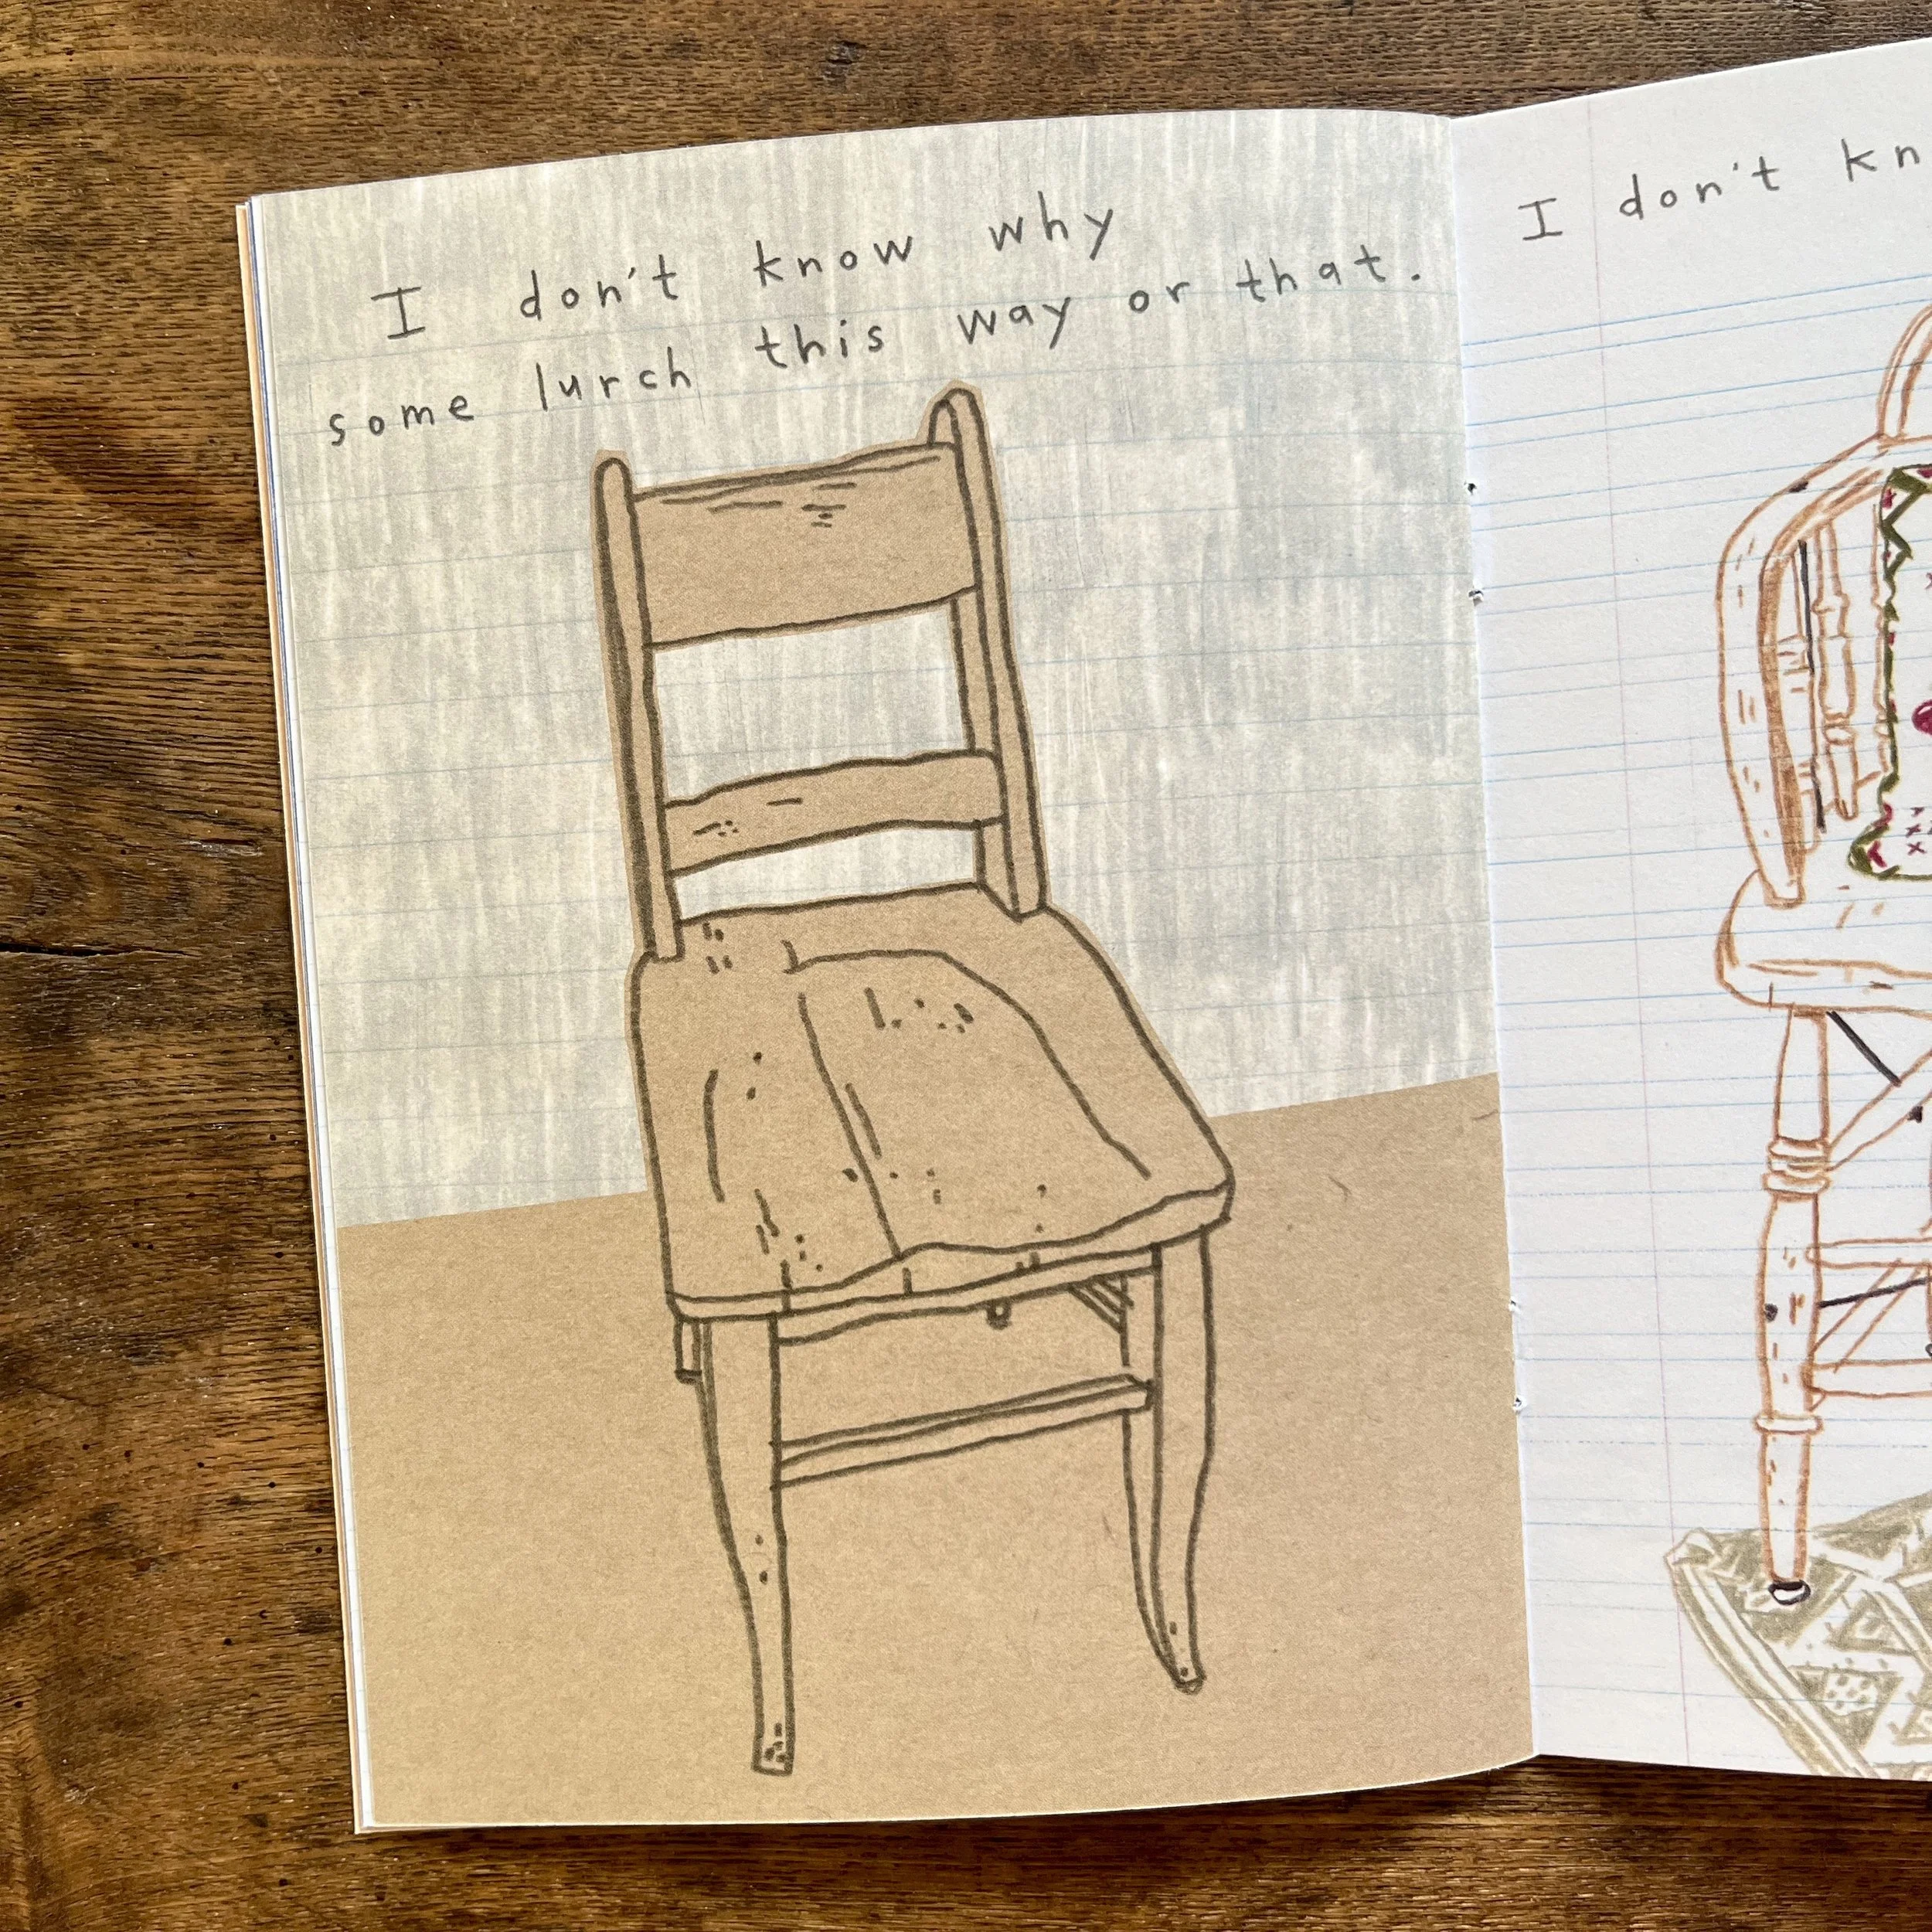 I don't know why
some lurch this way or that.
I don't